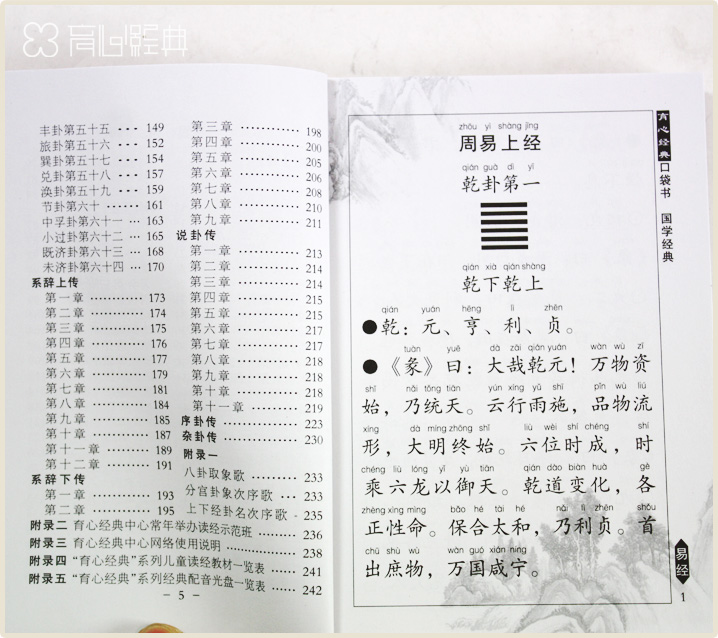 育心经典
丰卦第五十五 ··· 149
旅卦第五十六 ··· 152
巽卦第五十七 ··· 154
兑卦第五十八 ··· 157
涣卦第五十九 ··· 159
节卦第六十 ······ 161
中孚卦第六十一 ··· 163
小过卦第六十二 ··· 165
既济卦第六十三 ··· 168
未济卦第六十四 ··· 170
系辞上传
第一章 ·········· 173
第二章 ·········· 174
第三章 ·········· 175
第四章 ·········· 176
第五章 ·········· 177
第六章 ·········· 179
第七章 ·········· 181
第八章 ·········· 184
第九章 ·········· 185
第十章 ·········· 187
第十一章 ········ 189
第十二章 ········ 191
系辞下传
第一章 ·········· 193
第二章 ·········· 195
第三章 ············ 198
第四章 ············ 200
第五章 ············ 205
第六章 ············ 206
第七章 ············ 208
第八章 ············ 210
第九章 ············ 211
说卦传
第一章 ············ 213
第二章 ············ 214
第三章 ············ 214
第四章 ············ 215
第五章 ············ 215
第六章 ············ 217
第七章 ············ 217
第八章 ············ 218
第九章 ············ 218
第十章 ············ 218
第十一章 ·········· 219
序卦传 ············ 223
杂卦传 ············ 230
附录一
八卦取象歌 ········ 233
分宫卦象次序歌 ···· 233
上下经卦名次序歌 · 235
附录二 育心经典中心常年举办读经示范班 ······ 236
附录三 育心经典中心网络使用说明 ············ 238
附录四 “育心经典”系列儿童读经教材一览表 ··· 241
附录五 “育心经典”系列经典配音光盘一览表 ··· 242
- 5 -
zhōu yì shàng jīng
周易上经
qián guà dì yī
乾卦第一
qián xià qián shàng
乾下乾上
qián yuán hēng lì zhēn
●乾：元、亨、利、贞。
tuàn yuē dà zāi qián yuán wàn wù zī
●《彖》曰：大哉乾元！万物资
shǐ nǎi tǒng tiān yún xíng yǔ shī pǐn wù liú
始，乃统天。云行雨施，品物流
xíng dà míng zhōng shǐ liù wèi shí chéng shí
形，大明终始。六位时成，时
chéng liù lóng yǐ yù tiān qián dào biàn huà gè
乘六龙以御天。乾道变化，各
zhèng xìng mìng bǎo hé tài hé nǎi lì zhēn shǒu
正性命。保合太和，乃利贞。首
chū shù wù wàn guó xián níng
出庶物，万国咸宁。
育心经典口袋书 国学经典
易经
1